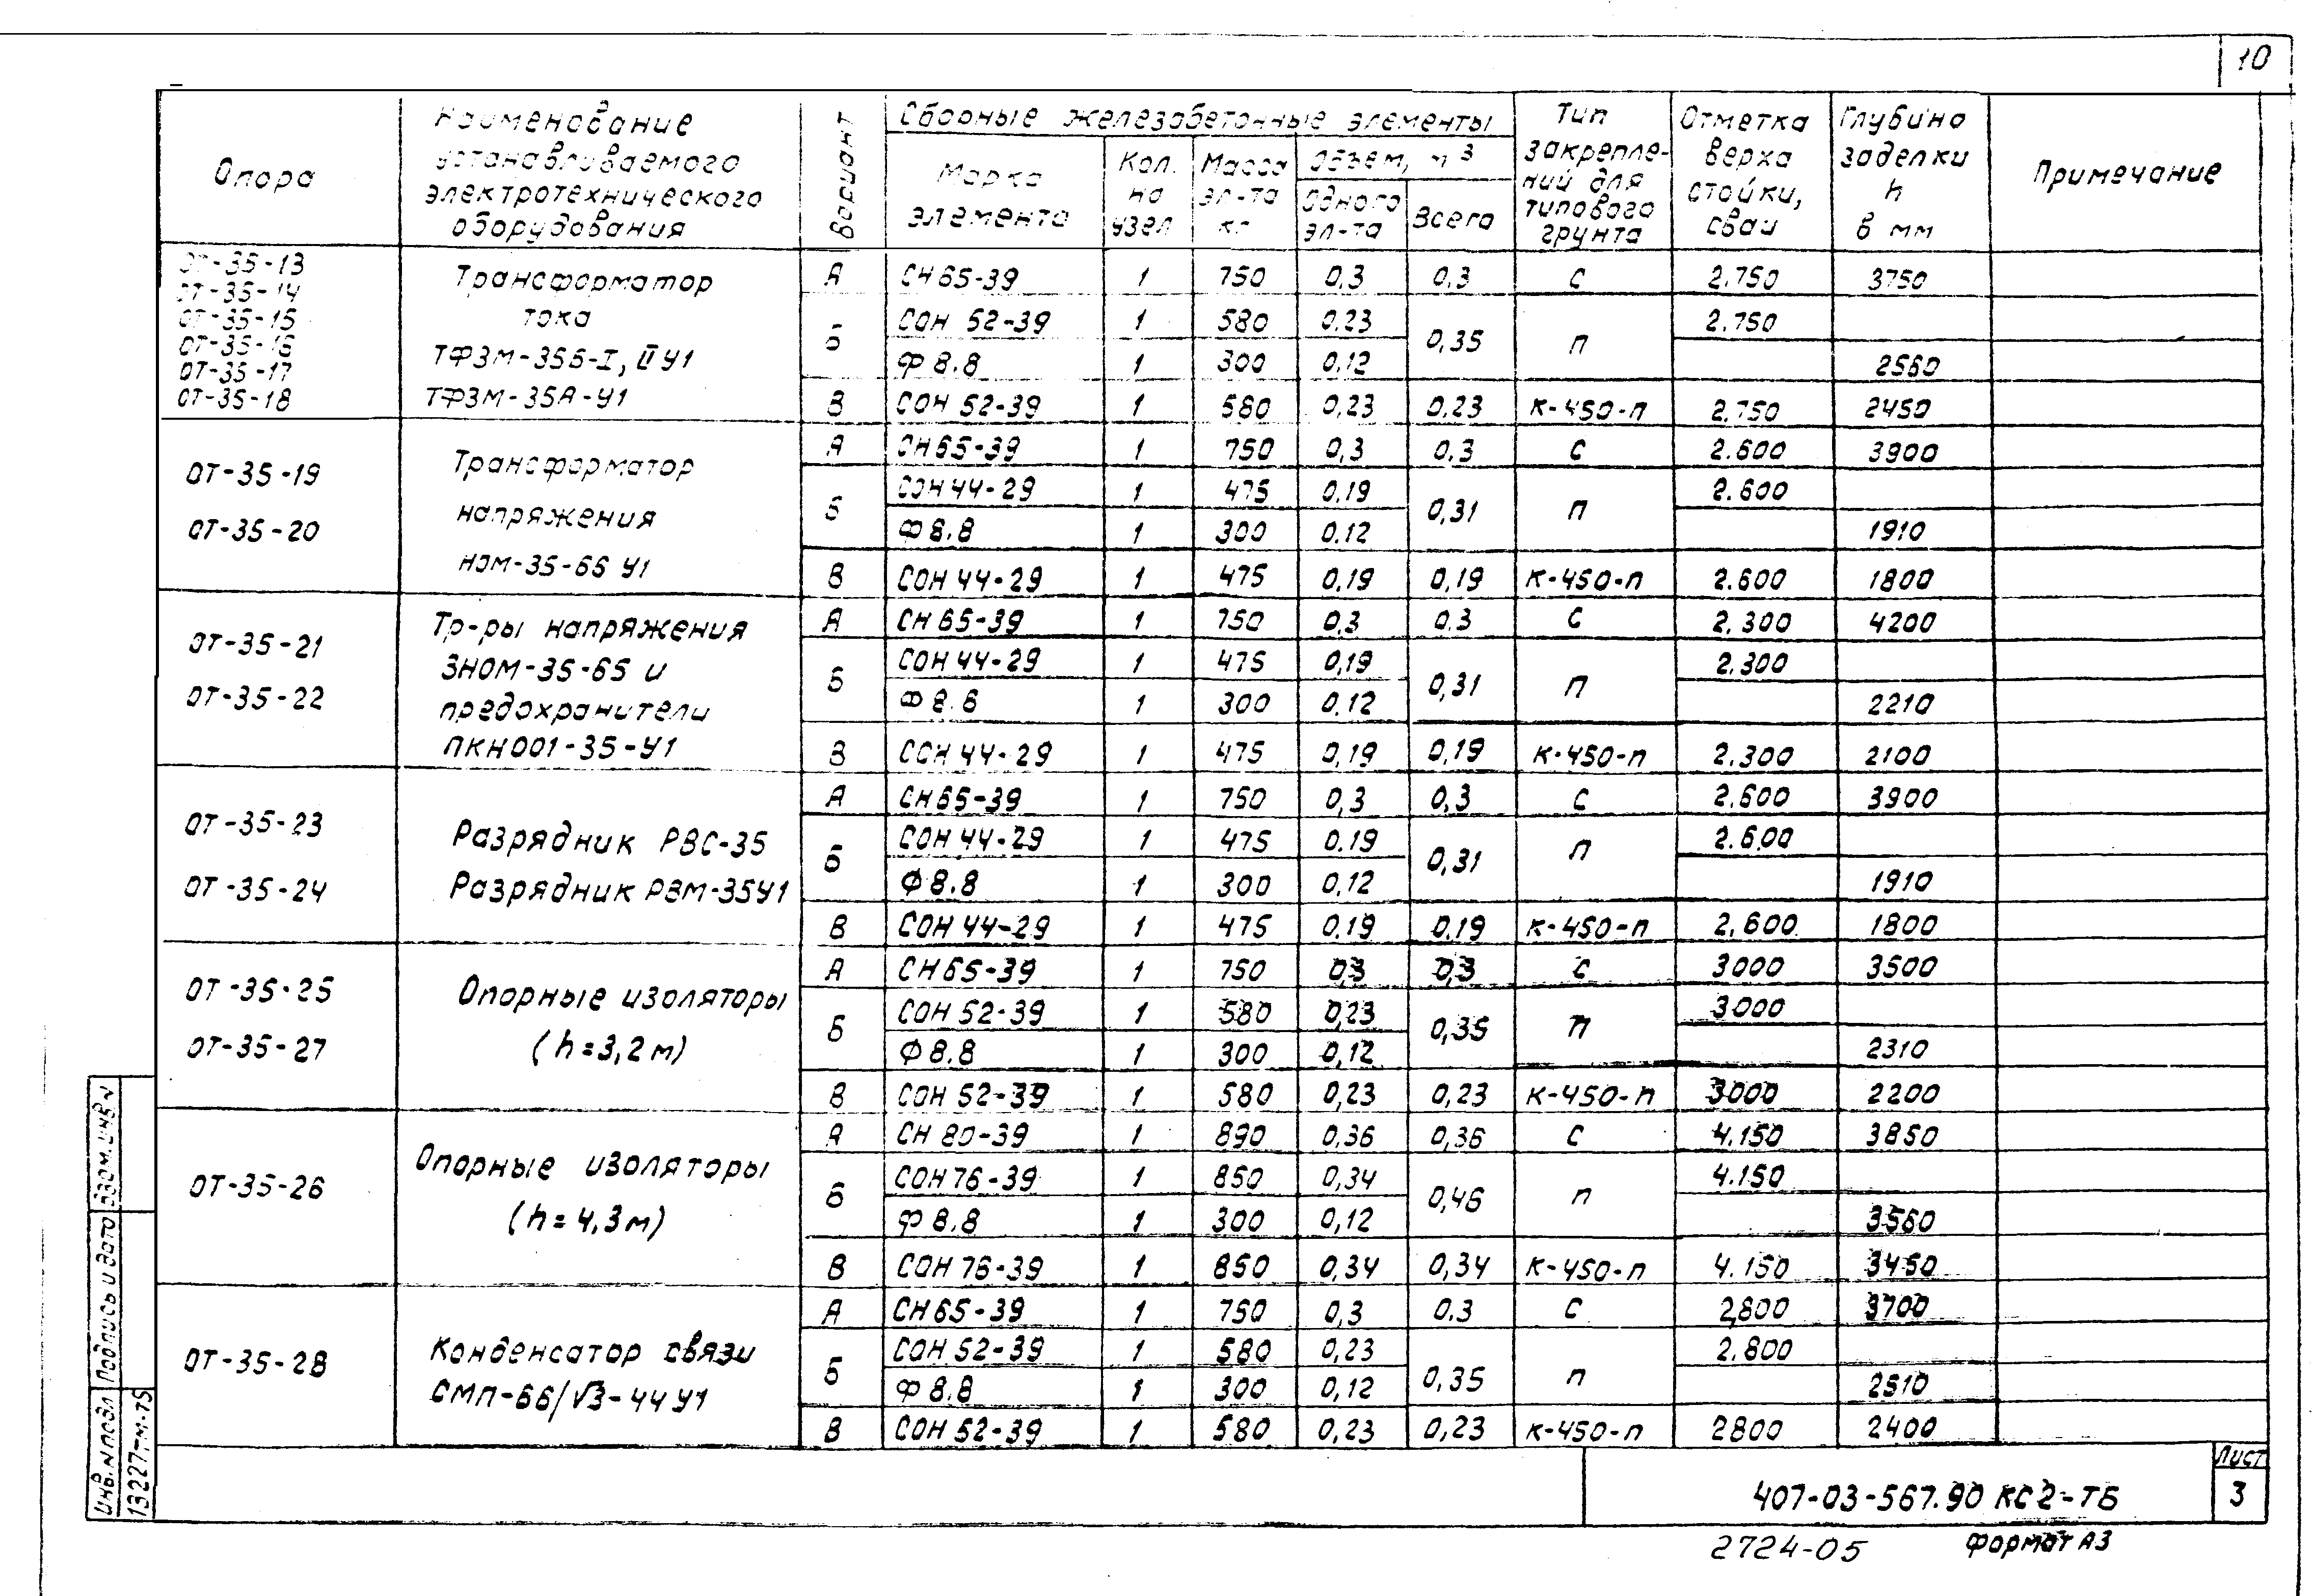 10
Опора
Наименование
устанавливаемого
электротехнического
оборудования
Вариант
Сборные железобетонные элементы
Марка
элемента
Кол.
на
узел
Масса
эл-та
кг
Объем, м³
Одного
эл-та
Всего
Тип
закрепле-
ний для
типового
грунта
Отметка
верха
стойки,
сваи
Глубина
заделки
h
в мм
Примечание
ОТ-35-13
ОТ-35-14
ОТ-35-15
ОТ-35-16
ОТ-35-17
ОТ-35-18
Трансформатор
тока
ТФЗМ-35Б-I, II У1
ТФЗМ-35А-У1
А СН65-39 1 750 0,3 0,3 С 2.750 3750
Б СОН 52-39 1 580 0.23 0,35 П 2.750
Ф 8.8 1 300 0.12 2560
В СОН 52-39 1 580 0,23 0,23 К-450-П 2.750 2450
ОТ-35-19
ОТ-35-20
Трансформатор
напряжения
НОМ-35-66 У1
А СН65-39 1 750 0,3 0.3 С 2.600 3900
Б СОН 44-29 1 475 0.19 0,31 П 2.600
Ф8.8 1 300 0.12 1910
В СОН 44-29 1 475 0,19 0,19 К-450-П 2.600 1800
ОТ-35-21
ОТ-35-22
Тр-ры напряжения
ЗНОМ-35-65 и
предохранители
ПКН001-35-У1
А СН65-39 1 750 0,3 0.3 С 2.300 4200
Б СОН 44-29 1 475 0,19 0,31 П 2.300
Ф 8.8 1 300 0.12 2210
В СОН 44-29 1 475 0,19 0,19 К-450-П 2.300 2100
ОТ-35-23
ОТ-35-24
Разрядник РВС-35
Разрядник РВМ-35У1
А СН65-39 1 750 0,3 0,3 С 2.600 3900
Б СОН 44-29 1 475 0.19 0,31 П 2.600
Ф8.8 1 300 0,12 1910
В СОН 44-29 1 475 0.19 0.19 К-450-П 2,600 1800
ОТ-35-25
ОТ-35-27
Опорные изоляторы
(h=3,2м)
А СН65-39 1 750 0,3 0,3 С 3000 3500
Б СОН 52-39 1 580 0,23 0,35 П 3000
Ф8.8 1 300 0,12 2310
В СОН 52-39 1 580 0,23 0,23 К-450-П 3000 2200
ОТ-35-26
Опорные изоляторы
(h=4,3м)
А СН 80-39 1 890 0,36 0,36 С 4.150 3850
Б СОН 76-39 1 850 0,34 0,46 П 4.150
Ф 8.8 1 300 0,12 3560
В СОН 76-39 1 850 0,34 0,34 К-450-П 4.150 3450
ОТ-35-28
Конденсатор связи
СМП-66/√3-44У1
А СН65-39 1 750 0,3 0.3 С 2,800 3700
Б СОН 52-39 1 580 0,23 0,35 П 2.800
Ф 8.8 1 300 0,12 2510
В СОН 52-39 1 580 0,23 0,23 К-450-П 2800 2400
Инв. N подл Подпись и дата Взам. инв N
13227ТМ-Т5
407-03-567.90 КС2-ТБ
Лист
3
2724-05
Формат А3